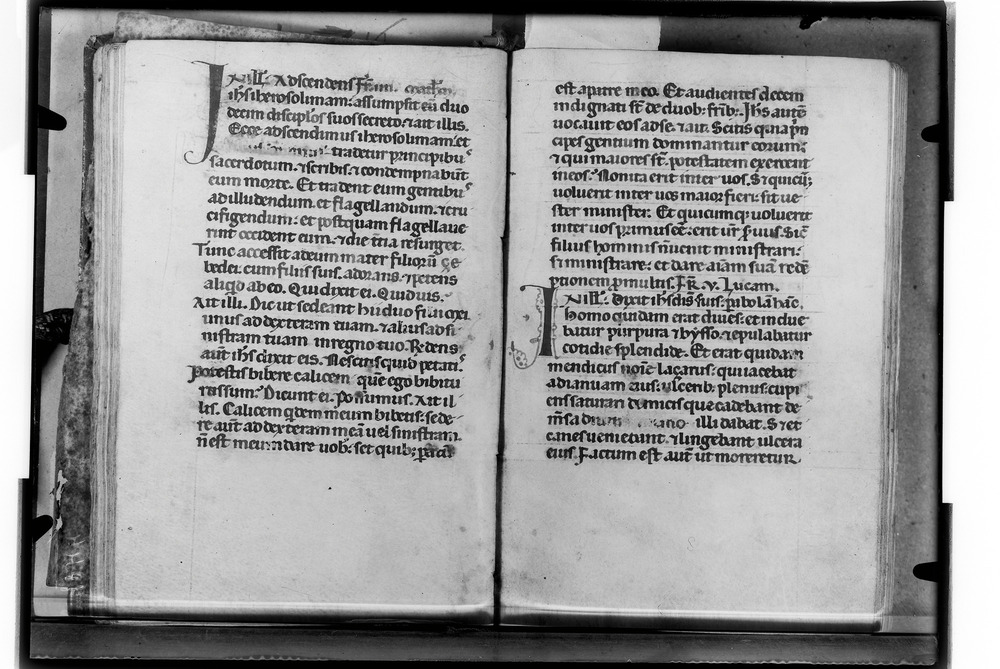 In illo Adscendens
ihs iherosolimam: assumpsit eu duo
decim disciplos suos secreto. ⁊ ait illis.
Ecce adscendimus iherosolimam: et
tradetur principibus
sacerdotum. ⁊ scribis. ⁊ condempnabunt
eum morte. Et tradent eum gentibus
ad illudendum. et flagellandum. ⁊ cru
cifigendum: et postquam flagellaue
rint occident eum. ⁊ die tcia resurget.
Tunc accessit ad eum mater filioru ze
bedei. cum filiis suis. adorans. ⁊ petens
aliqd ab eo. Qui dixit ei. Quid uis.
Ait illi. Dic ut sedeant hii duo filii mei
unus ad dexteram tuam. ⁊ alius ad si
nistram tuam in regno tuo. Rndens
aut ihs dixit eis. Nescitis quid petatis.
Potestis bibere calicem que ego bibitu
rus sum. Dicunt ei. Possumus. Ait il
lis. Calicem qdem meum bibetis: sede
re aut ad dexteram mea uel sinistram.
n est meum dare uob. set quib: parat
est a patre meo. Et audientes decem
indignati st de duob: frib: Ihs aute
uocauit eos ad se. ⁊ ait. Scitis quia prin
cipes gentium dominantur eorum:
⁊ qui maiores st. potestatem exercent
in eos. Non ita erit inter uos. S; quicuq;
uoluerit inter uos maior fieri: sit ue
ster minister. Et quicumq; uoluerit
inter uos primus ee: erit ur seruus. Sic
filius hominis n uenit ministrari:
s; ministrare: et dare aiam sua rede
ptionem p multis. Fr. v. Lucam.
In illo. dixit ihs discis suis: pabola hac.
Homo quidam erat diues: et indue
batur purpura ⁊ bysso. ⁊ epulabatur
cotidie splendide. Et erat quidam
mendicus noie Lazarus: qui iacebat
ad ianuam eius: ulcerib; plenus: cupi
ens saturari de micis que cadebant de
msa illi dabat. S; et
canes ueniebant. ⁊ lingebant ulcera
eius. Factum est aut ut moreretur